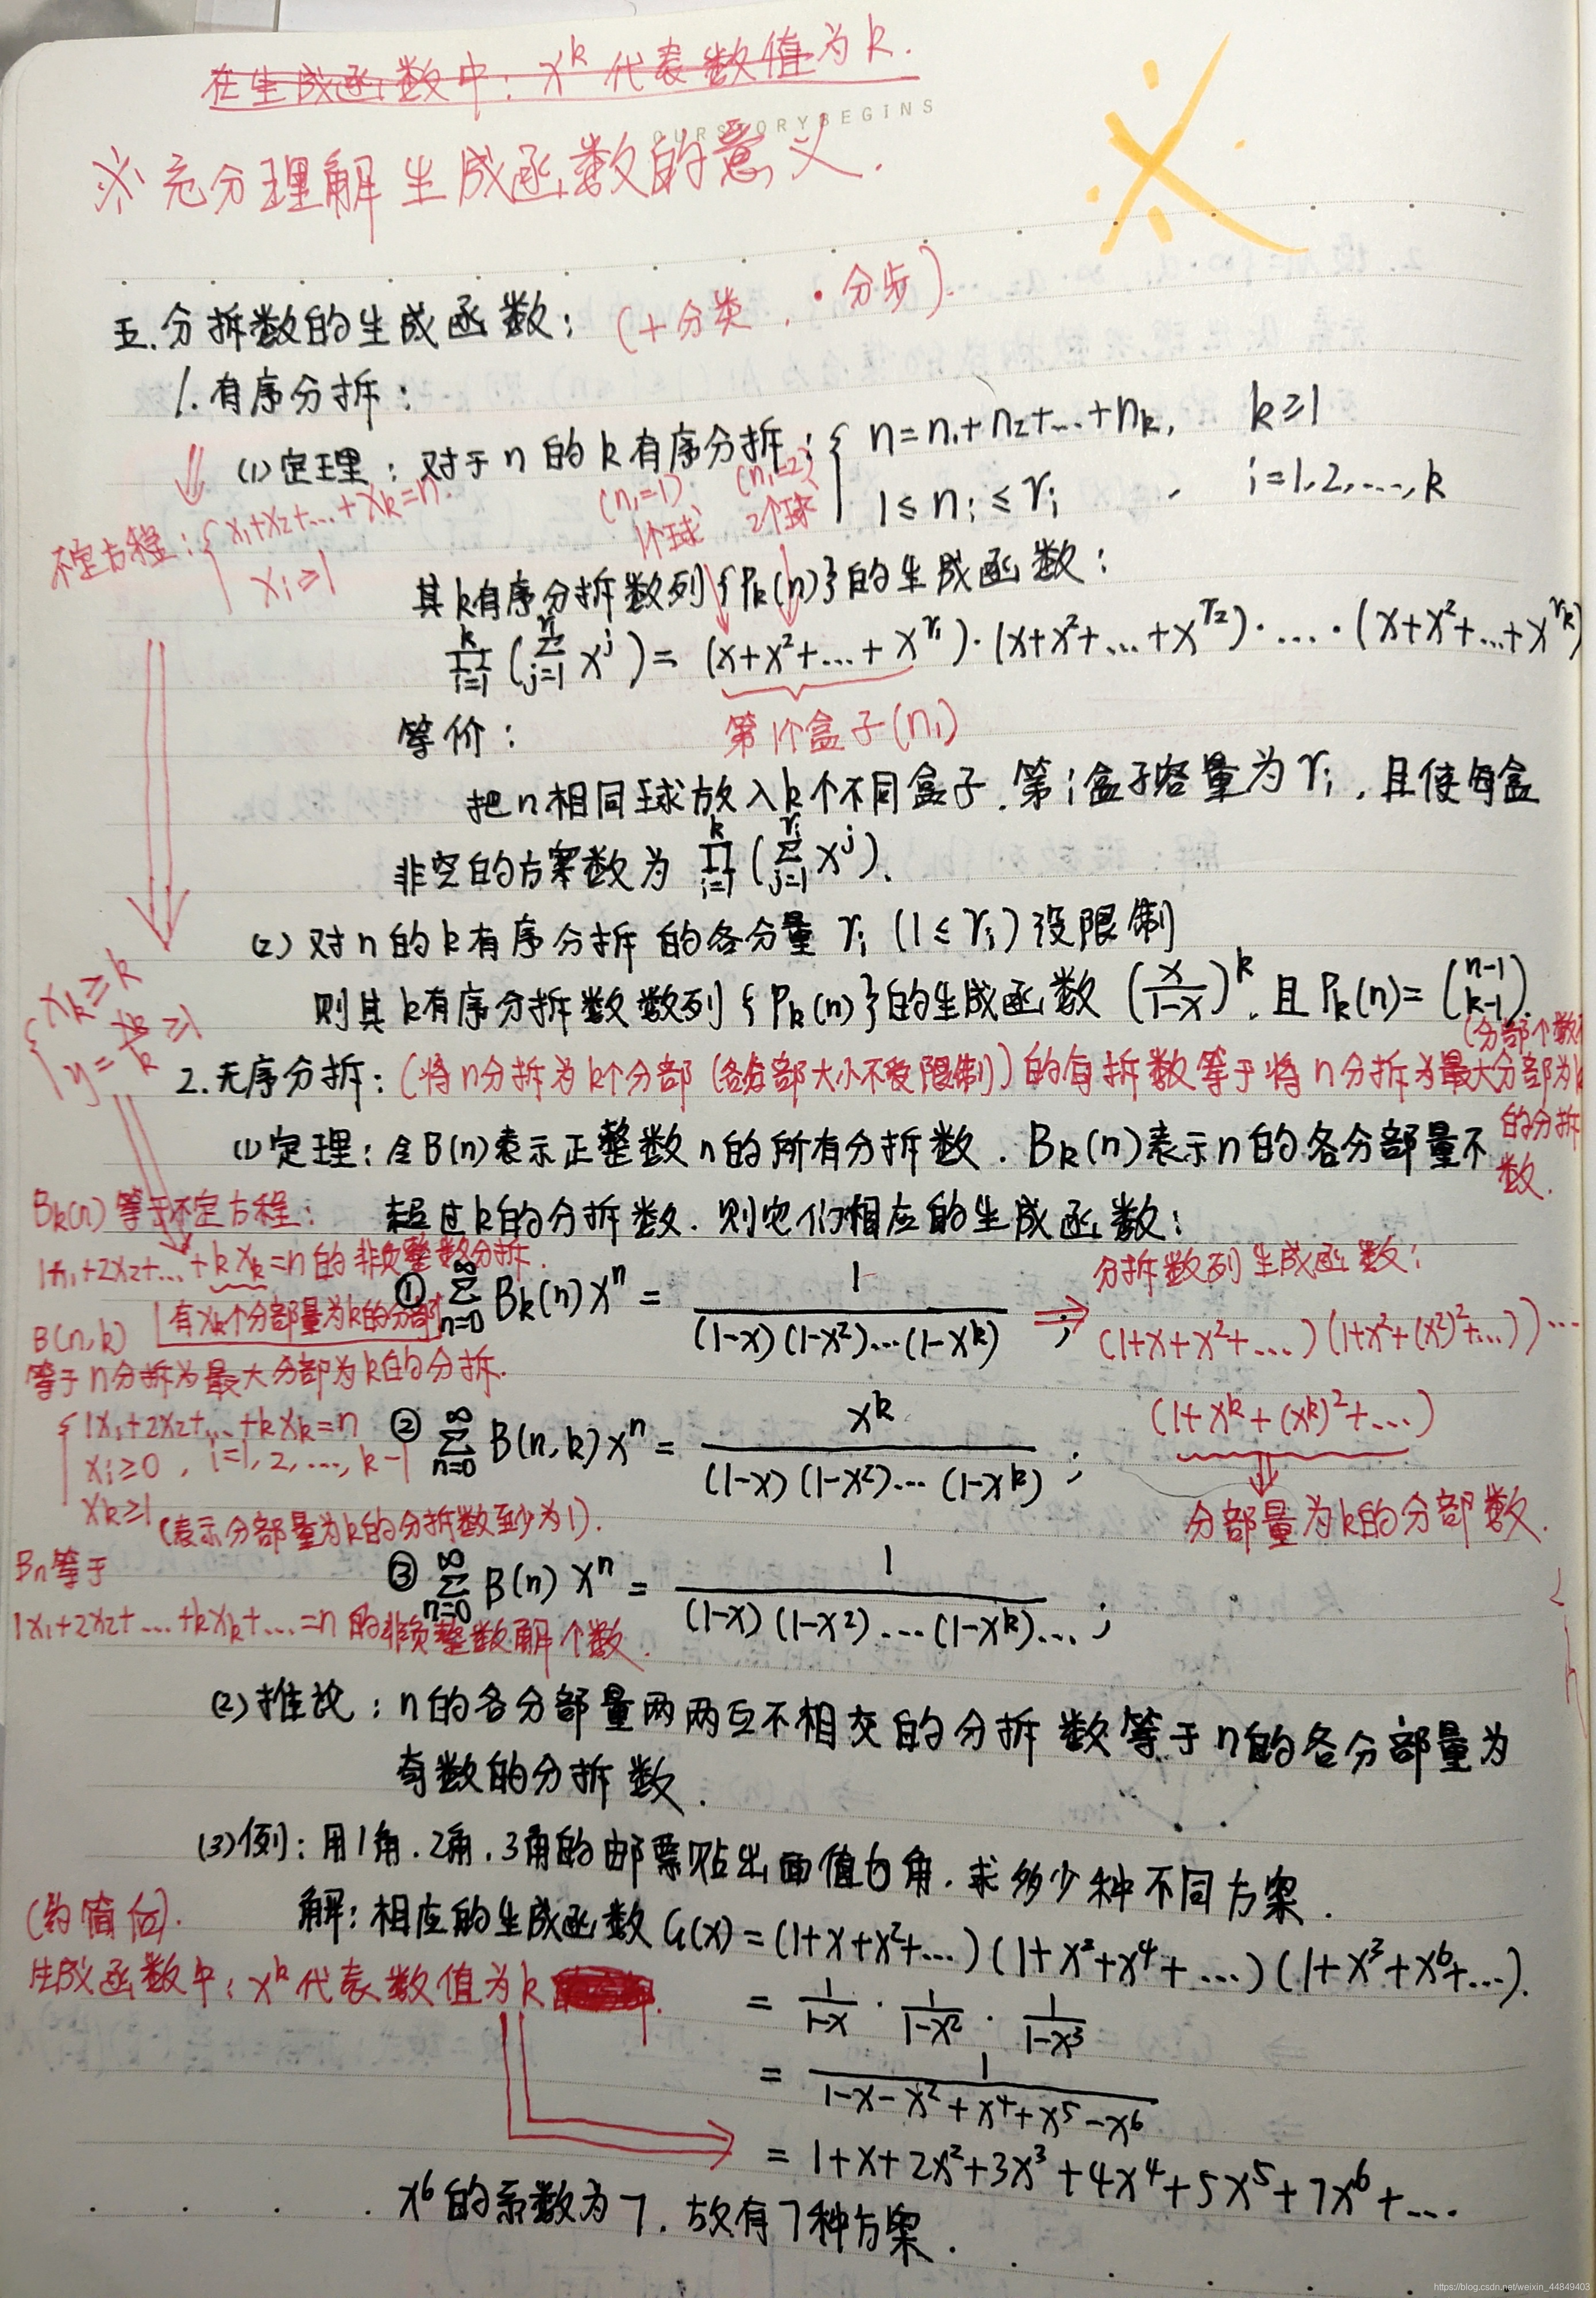 在生成函数中：x^k 代表数值为k.
OURSTORYBEGINS
※充分理解生成函数的意义.
五.分拆数的生成函数：(+分类，·分步).
1.有序分拆：
(1)定理：对于n的k有序分拆：{ n=n₁+n₂+...+n_k, k≥1
1≤n_i≤r_i , i=1,2,...,k
不定方程：{ x₁+x₂+...+x_k=n.
x_i≥1
(n₁=1) (n₁=2)
1个球、2个球
其k有序分拆数列{P_k(n)}的生成函数：
∏_{i=1}^{k} (∑_{j=1}^{r_i} x^j) = (x+x²+...+x^{r₁})·(x+x²+...+x^{r₂})·...·(x+x²+...+x^{r_k})
第1个盒子(n₁)
等价：
把n相同球放入k个不同盒子.第i盒子容量为r_i，且使每盒
非空的方案数为 ∏_{i=1}^{k} (∑_{j=1}^{r_i} x^j).
(2)对n的k有序分拆的各分量 r_i (1≤r_i) 没限制
则其k有序分拆数数列{P_k(n)}的生成函数 (x/(1-x))^k. 且 P_k(n)=(n-1 k-1).
{ x_k≥k
y=x_k/k≥1
2.无序分拆：(将n分拆为k个分部(各分部大小不受限制))的有拆数等于将n分拆为最大分部为k
的分拆
数.
(1)定理：令B(n)表示正整数n的所有分拆数.B_k(n)表示n的各分部量不
超过k的分拆数.则它们相应的生成函数：
B_k(n)等于不定方程：
1x₁+2x₂+...+kx_k=n的非负整数分拆.
有x_k个分部量为k的分部
① ∑_{n=0}^{∞} B_k(n)x^n = 1/((1-x)(1-x²)...(1-x^k)) ;
⇒ 分拆数列生成函数：
(1+x+x²+...)(1+x²+(x²)²+...)...
(1+x^k+(x^k)²+...)
分部量为k的分部数.
B(n,k)
等于n分拆为最大分部为k的分拆.
{ 1x₁+2x₂+...+kx_k=n
x_i≥0, i=1,2,...,k-1
x_k≥1 (表示分部量为k的分拆数至少为1).
② ∑_{n=0}^{∞} B(n,k)x^n = x^k/((1-x)(1-x²)...(1-x^k)) ;
Bn等于
1x₁+2x₂+...+kx_k+...=n的非负整数解个数.
③ ∑_{n=0}^{∞} B(n)x^n = 1/((1-x)(1-x²)...(1-x^k)...) ;
(2)推论：n的各分部量两两互不相交的分拆数等于n的各分部量为
奇数的分拆数.
(3)例：用1角.2角.3角的邮票贴出面值6角.求多少种不同方案.
解：相应的生成函数G(x)=(1+x+x²+...)(1+x²+x⁴+...)(1+x³+x⁶+...).
生成函数中：x^k代表数值为k
= 1/(1-x) · 1/(1-x²) · 1/(1-x³)
= 1/(1-x-x²+x⁴+x⁵-x⁶)
= 1+x+2x²+3x³+4x⁴+5x⁵+7x⁶+...
x⁶的系数为7.故有7种方案.
https://blog.csdn.net/weixin_44849403